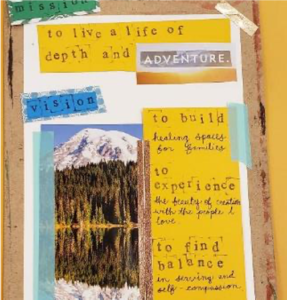 mission
to live a life of
depth and ADVENTURE.
vision
to build
healing spaces
for families
to
experience
the beauty of creation
with the people I
love
to find
balance
in serving and
self-compassion